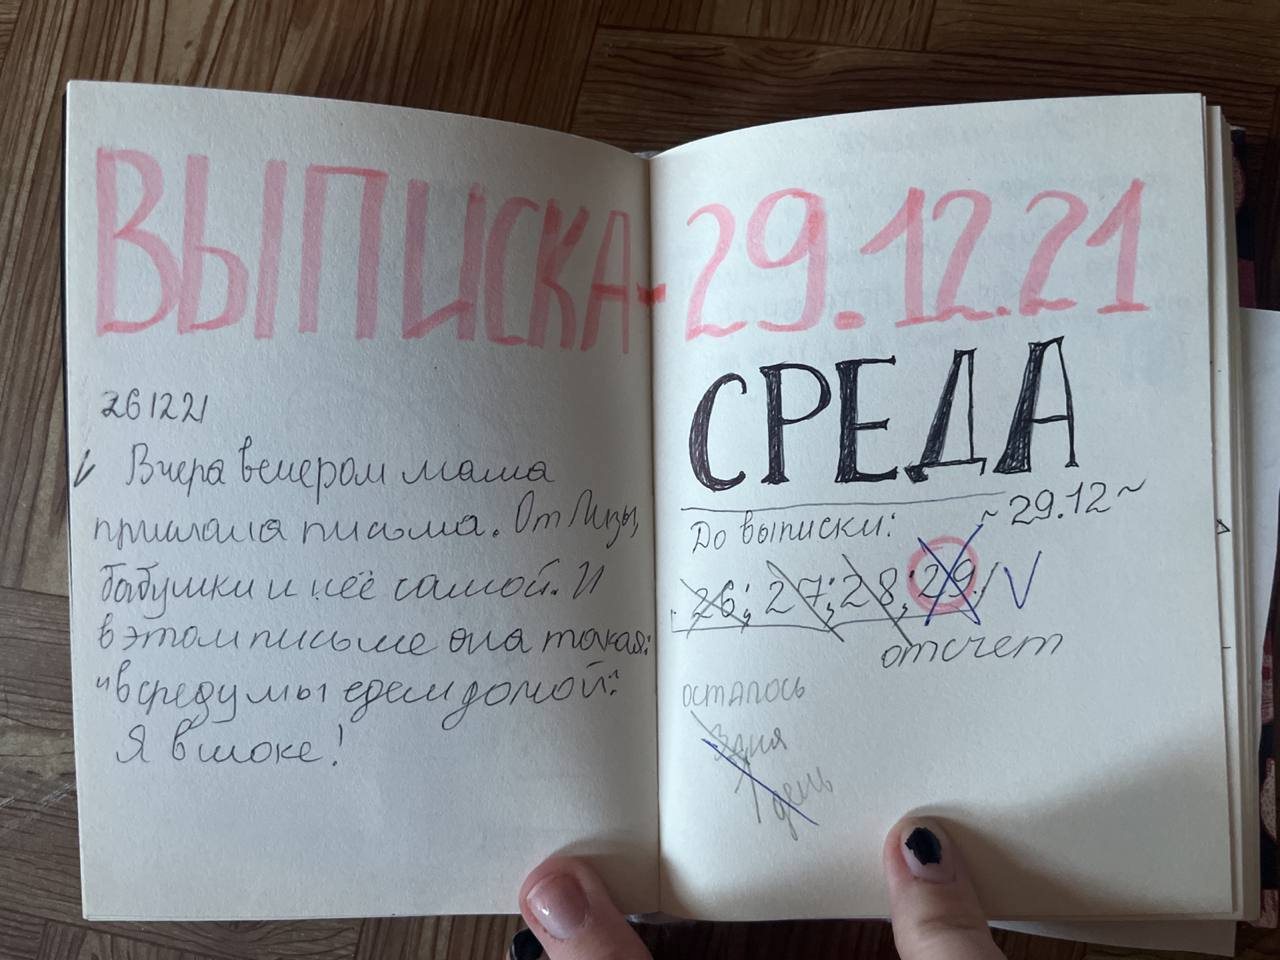 ВЫПИСКА-29.12.21
261221
V Вчера вечером мама
прислала письма. От Лизы,
бабушки и неё самой. И
в этом письме она такая:
"в среду мы едем домой".
Я в шоке!
СРЕДА
~ 29.12 ~
До выписки:
26; 27; 28; 29 / V
отсчет
осталось
3 дня
1 день